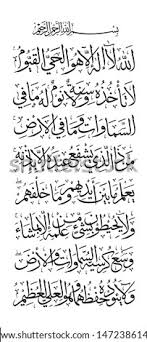 بسم الله الرحمن الرحيم
الله لا إله إلا هو الحي القيوم
لا تأخذه سنة ولا نوم له ما في
السماوات وما في الأرض
من ذا الذي يشفع عنده إلا بإذنه
يعلم ما بين أيديهم وما خلفهم
ولا يحيطون بشيء من علمه إلا بما شاء
وسع كرسيه السماوات والأرض
ولا يؤده حفظهما وهو العلي العظيم
shutterstock
www.shutterstock.com · 147238614